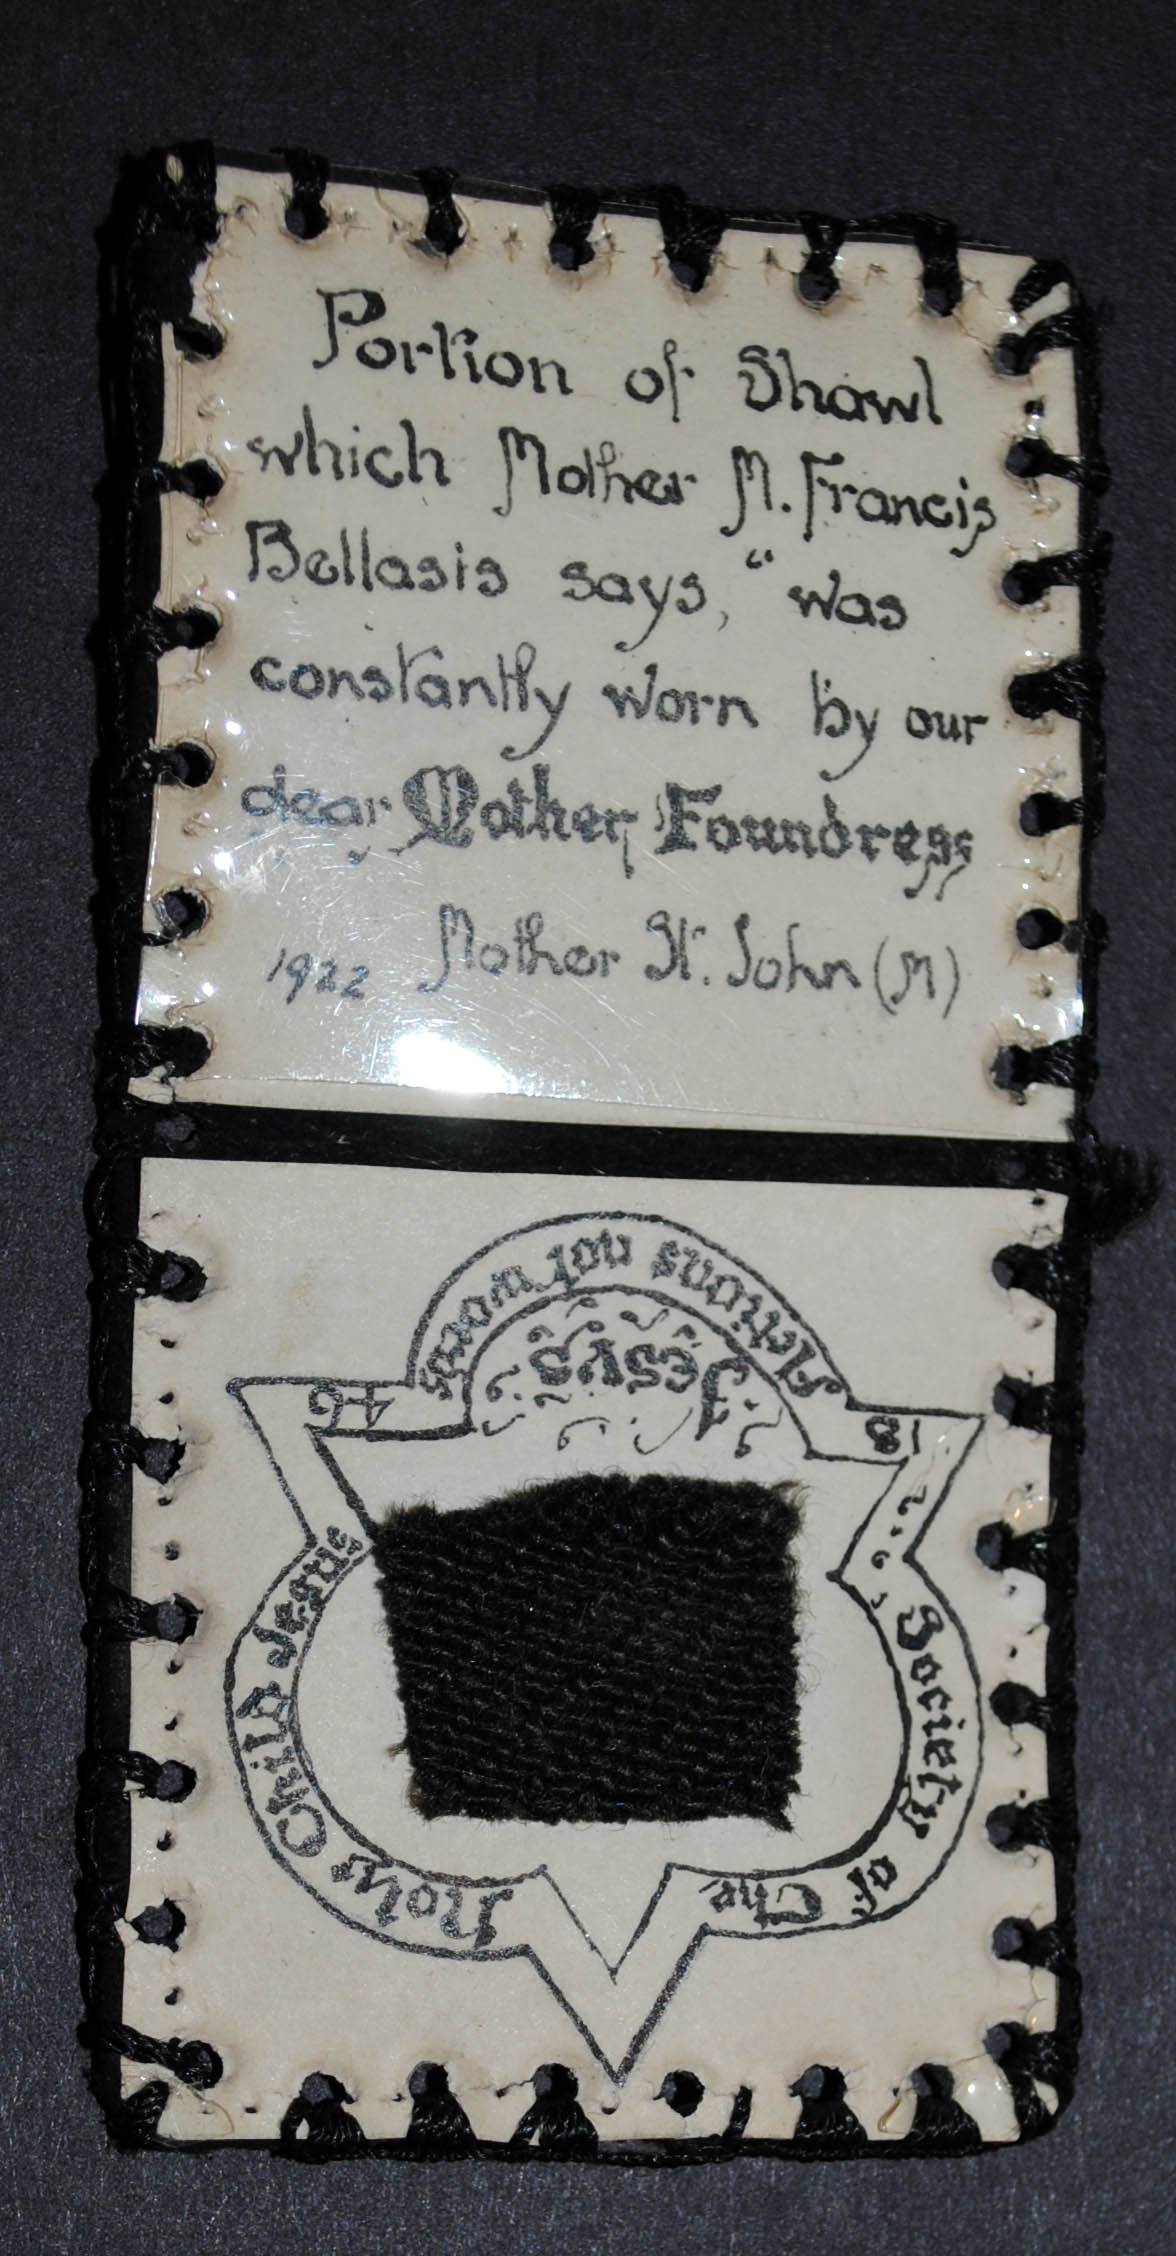 Portion of Shawl
which Mother M. Francis
Bellasis says, "was
constantly worn by our
dear Mother Foundress
1922 Mother St. John (M)
Actions not words
Jesus
18 46
The Society of
Holy Child Jesus